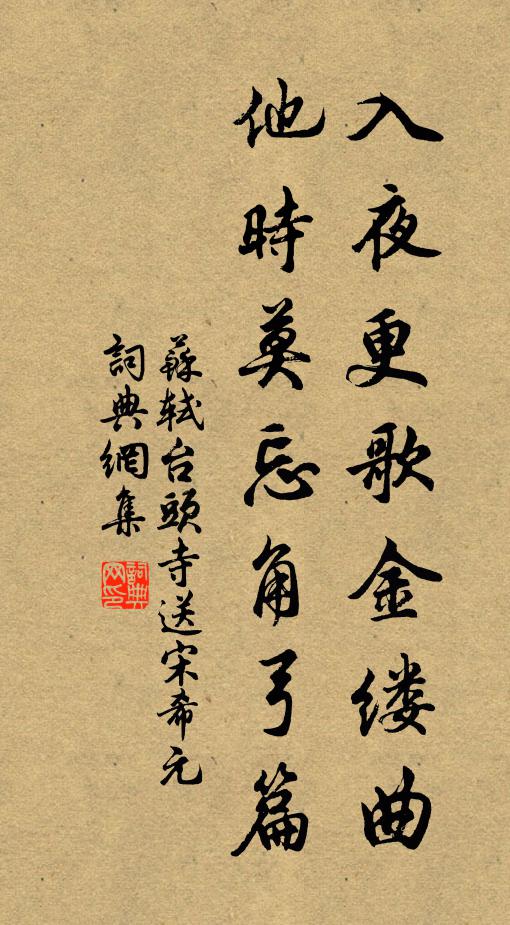 入夜更歌金缕曲
他時莫忘角弓篇
蘇軾台頭寺送宋希元
詞典網集
詞典网印